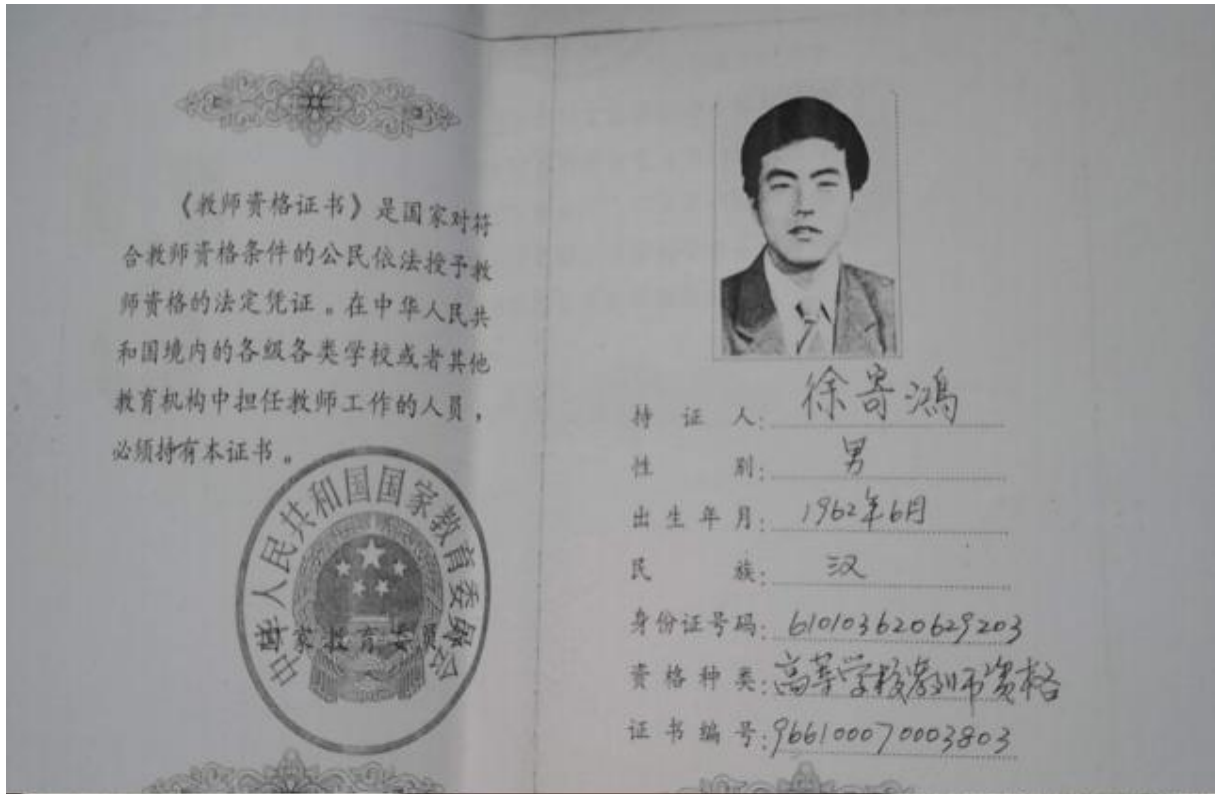 《教师资格证书》是国家对符
合教师资格条件的公民依法授予教
师资格的法定凭证。在中华人民共
和国境内的各级各类学校或者其他
教育机构中担任教师工作的人员，
必须持有本证书。
中华人民共和国国家教育委员会
国家教育委员
持证人: 徐寄鸿
性别: 男
出生年月: 1962年6月
民族: 汉
身份证号码: 610103620629203
资格种类: 高等学校教师资格
证书编号: 966100070003803